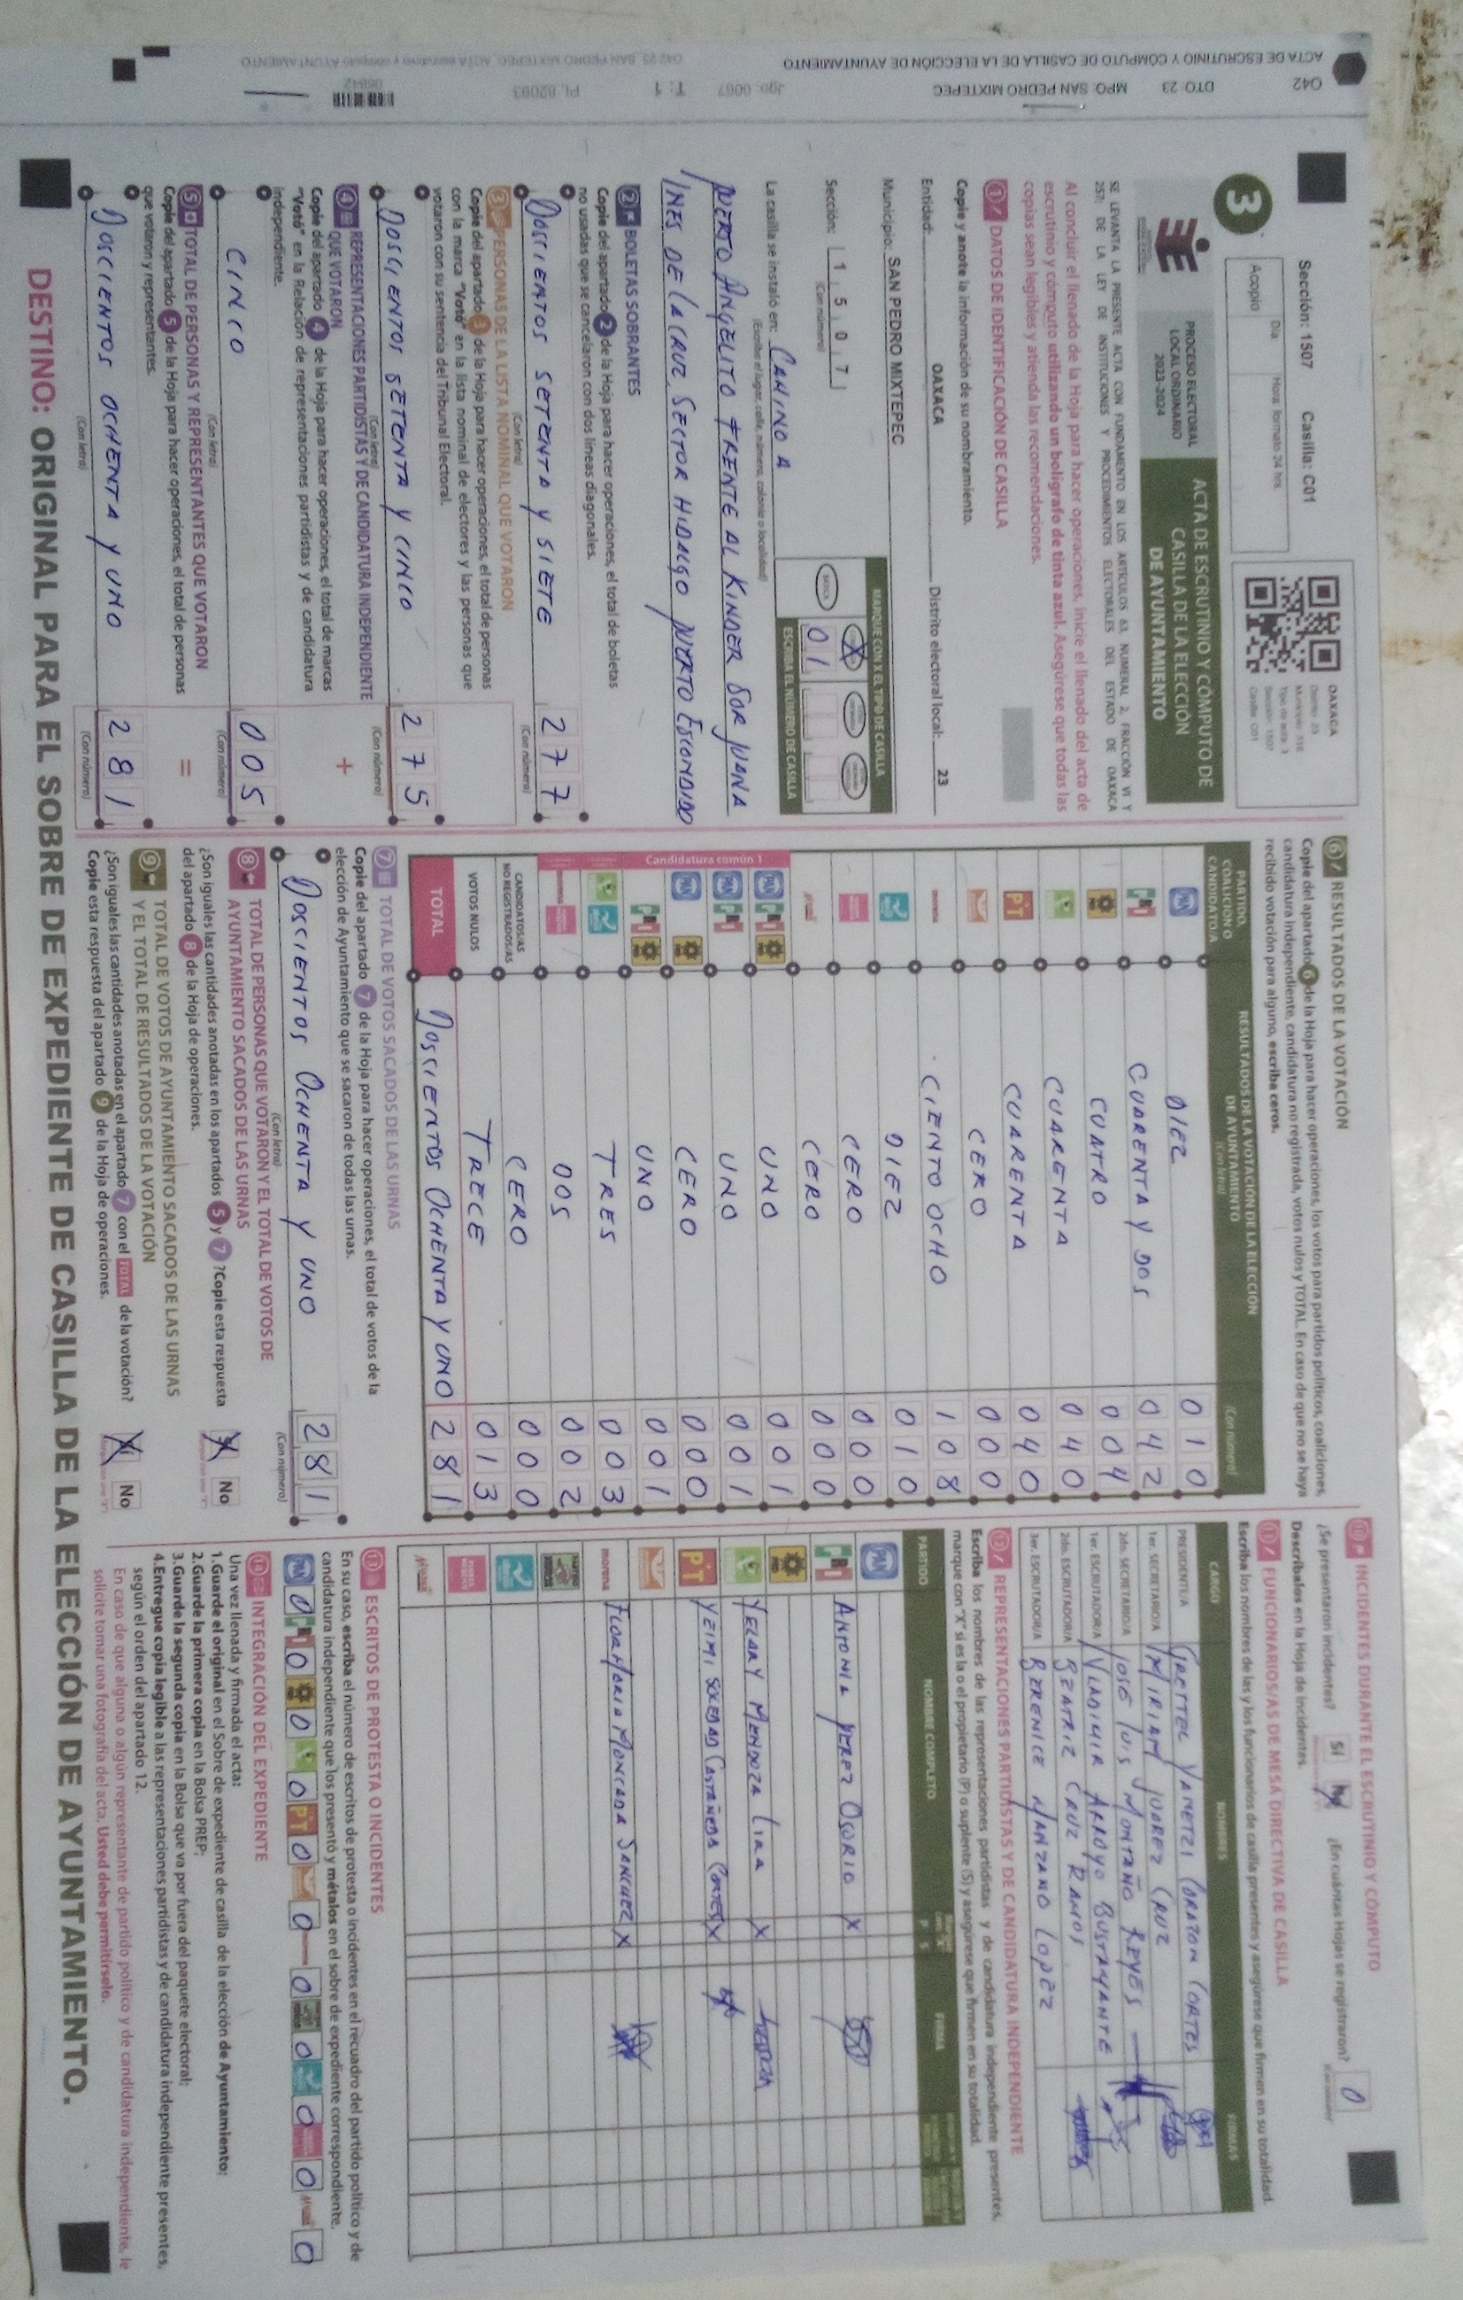 ACTA DE ESCRUTINIO Y CÓMPUTO DE CASILLA DE LA ELECCIÓN DE AYUNTAMIENTO
042 DTO: 23 MPO: SAN PEDRO MIXTEPEC
Sección: 1507 Casilla: C01
3
Acopio
Día
Hora: formato 24 hrs.
OAXACA
PROCESO ELECTORAL
LOCAL ORDINARIO
2023-2024
ACTA DE ESCRUTINIO Y CÓMPUTO DE
CASILLA DE LA ELECCIÓN
DE AYUNTAMIENTO
SE LEVANTA LA PRESENTE ACTA CON FUNDAMENTO EN LOS ARTÍCULOS 63, NUMERAL 2, FRACCIÓN VI Y
257; DE LA LEY DE INSTITUCIONES Y PROCEDIMIENTOS ELECTORALES DEL ESTADO DE OAXACA
Al concluir el llenado de la Hoja para hacer operaciones, inicie el llenado del acta de
escrutinio y cómputo utilizando un bolígrafo de tinta azul. Asegúrese que todas las
copias sean legibles y atienda las recomendaciones.
1 DATOS DE IDENTIFICACIÓN DE CASILLA
Copie y anote la información de su nombramiento.
Entidad: OAXACA Distrito electoral local: 23
Municipio: SAN PEDRO MIXTEPEC
MARQUE CON X EL TIPO DE CASILLA
Sección: 1 5 0 7
(Con número)
0 1
ESCRIBA EL NÚMERO DE CASILLA
La casilla se instaló en: CAMINO A
(Escriba el lugar, calle, número, colonia o localidad)
PUERTO ANGELITO FRENTE AL KINDER SOR JUANA
INES DE LA CRUZ, SECTOR HIDALGO PUERTO ESCONDIDO
2 BOLETAS SOBRANTES
Copie del apartado 2 de la Hoja para hacer operaciones, el total de boletas
no usadas que se cancelaron con dos líneas diagonales.
DOSCIENTOS SETENTA Y SIETE 277
(Con letra) (Con número)
3 PERSONAS DE LA LISTA NOMINAL QUE VOTARON
Copie del apartado 3 de la Hoja para hacer operaciones, el total de personas
con la marca "Votó" en la lista nominal de electores y las personas que
votaron con su sentencia del Tribunal Electoral.
DOSCIENTOS SETENTA Y CINCO 275
(Con letra) (Con número)
4 REPRESENTACIONES PARTIDISTAS Y DE CANDIDATURA INDEPENDIENTE
QUE VOTARON
Copie del apartado 4 de la Hoja para hacer operaciones, el total de marcas
"Votó" en la Relación de representaciones partidistas y de candidatura
independiente.
+
CINCO 005
(Con letra) (Con número)
5 TOTAL DE PERSONAS Y REPRESENTANTES QUE VOTARON
Copie del apartado 5 de la Hoja para hacer operaciones, el total de personas
que votaron y representantes.
=
DOSCIENTOS OCHENTA Y UNO 281
(Con letra) (Con número)
6 RESULTADOS DE LA VOTACIÓN
Copie del apartado 6 de la Hoja para hacer operaciones, los votos para partidos políticos, coaliciones,
candidatura independiente, candidatura no registrada, votos nulos y TOTAL. En caso de que no se haya
recibido votación para alguno, escriba ceros.
PARTIDO, COALICIÓN O CANDIDATO/A
RESULTADOS DE LA VOTACIÓN DE LA ELECCIÓN
DE AYUNTAMIENTO
(Con letra) (Con número)
PAN DIEZ 010
PRI CUARENTA Y DOS 042
PRD CUATRO 004
CUARENTA 040
PT CUARENTA 040
CERO 000
morena CIENTO OCHO 108
DIEZ 010
CERO 000
CERO 000
Candidatura común 1
PAN PRI PRD UNO 001
PAN PRI UNO 001
PAN PRD CERO 000
PRI PRD UNO 001
TRES 003
DOS 002
CANDIDATOS/AS
NO REGISTRADOS/AS CERO 000
VOTOS NULOS TRECE 013
TOTAL DOSCIENTOS OCHENTA Y UNO 281
7 TOTAL DE VOTOS SACADOS DE LAS URNAS
Copie del apartado 7 de la Hoja para hacer operaciones, el total de votos de la
elección de Ayuntamiento que se sacaron de todas las urnas.
DOSCIENTOS OCHENTA Y UNO 281
(Con letra) (Con número)
8 TOTAL DE PERSONAS QUE VOTARON Y EL TOTAL DE VOTOS DE
AYUNTAMIENTO SACADOS DE LAS URNAS
¿Son iguales las cantidades anotadas en los apartados 5 y 7 ? Copie esta respuesta
del apartado 8 de la Hoja de operaciones.
No
9 TOTAL DE VOTOS DE AYUNTAMIENTO SACADOS DE LAS URNAS
Y EL TOTAL DE RESULTADOS DE LA VOTACIÓN
¿Son iguales las cantidades anotadas en el apartado 7 con el TOTAL de la votación?
Copie esta respuesta del apartado 9 de la Hoja de operaciones.
No
10 INCIDENTES DURANTE EL ESCRUTINIO Y CÓMPUTO
¿Se presentaron incidentes? Sí No ¿En cuántas Hojas se registraron? 0
Descríbalos en la Hoja de incidentes.
11 FUNCIONARIOS/AS DE MESA DIRECTIVA DE CASILLA
Escriba los nombres de las y los funcionarios de casilla presentes y asegúrese que firmen en su totalidad.
CARGO NOMBRES FIRMAS
PRESIDENTE/A GRETTEL YAMETZI CORAZON CORTES
1er. SECRETARIO/A MIRIAM JUAREZ CRUZ
2do. SECRETARIO/A JOSÉ LUIS MONTAÑO REYES
1er. ESCRUTADOR/A VLADIMIR ARROYO BUSTAMANTE
2do. ESCRUTADOR/A BEATRIZ CRUZ RAMOS
3er. ESCRUTADOR/A BERENICE MANZANO LOPEZ
REPRESENTACIONES PARTIDISTAS Y DE CANDIDATURA INDEPENDIENTE
Escriba los nombres de las representaciones partidistas y de candidatura independiente presentes,
marque con "X" si es la o el propietario (P) o suplente (S) y asegúrese que firmen en su totalidad.
PARTIDO NOMBRE COMPLETO P S FIRMA
PAN
PRI ANTONIA PEREZ OSORIO X
PRD
YELANY MENDOZA LIRA X
PT YEIMI SOLEDAD CASTAÑEDA CORTES X
morena FLOR MARIA MONCADA SANCHEZ X
ESCRITOS DE PROTESTA O INCIDENTES
En su caso, escriba el número de escritos de protesta o incidentes en el recuadro del partido político y de
candidatura independiente que los presentó y métalos en el sobre de expediente correspondiente.
0 0 0 0 0 0 0 0 0 0 0
INTEGRACIÓN DEL EXPEDIENTE
Una vez llenada y firmada el acta:
1.Guarde el original en el Sobre de expediente de casilla de la elección de Ayuntamiento;
2.Guarde la primera copia en la Bolsa PREP;
3.Guarde la segunda copia en la Bolsa que va por fuera del paquete electoral;
4.Entregue copia legible a las representaciones partidistas y de candidatura independiente presentes,
según el orden del apartado 12.
En caso de que alguna o algún representante de partido político y de candidatura independiente, le
solicite tomar una fotografía del acta, Usted debe permitírselo.
DESTINO: ORIGINAL PARA EL SOBRE DE EXPEDIENTE DE CASILLA DE LA ELECCIÓN DE AYUNTAMIENTO.